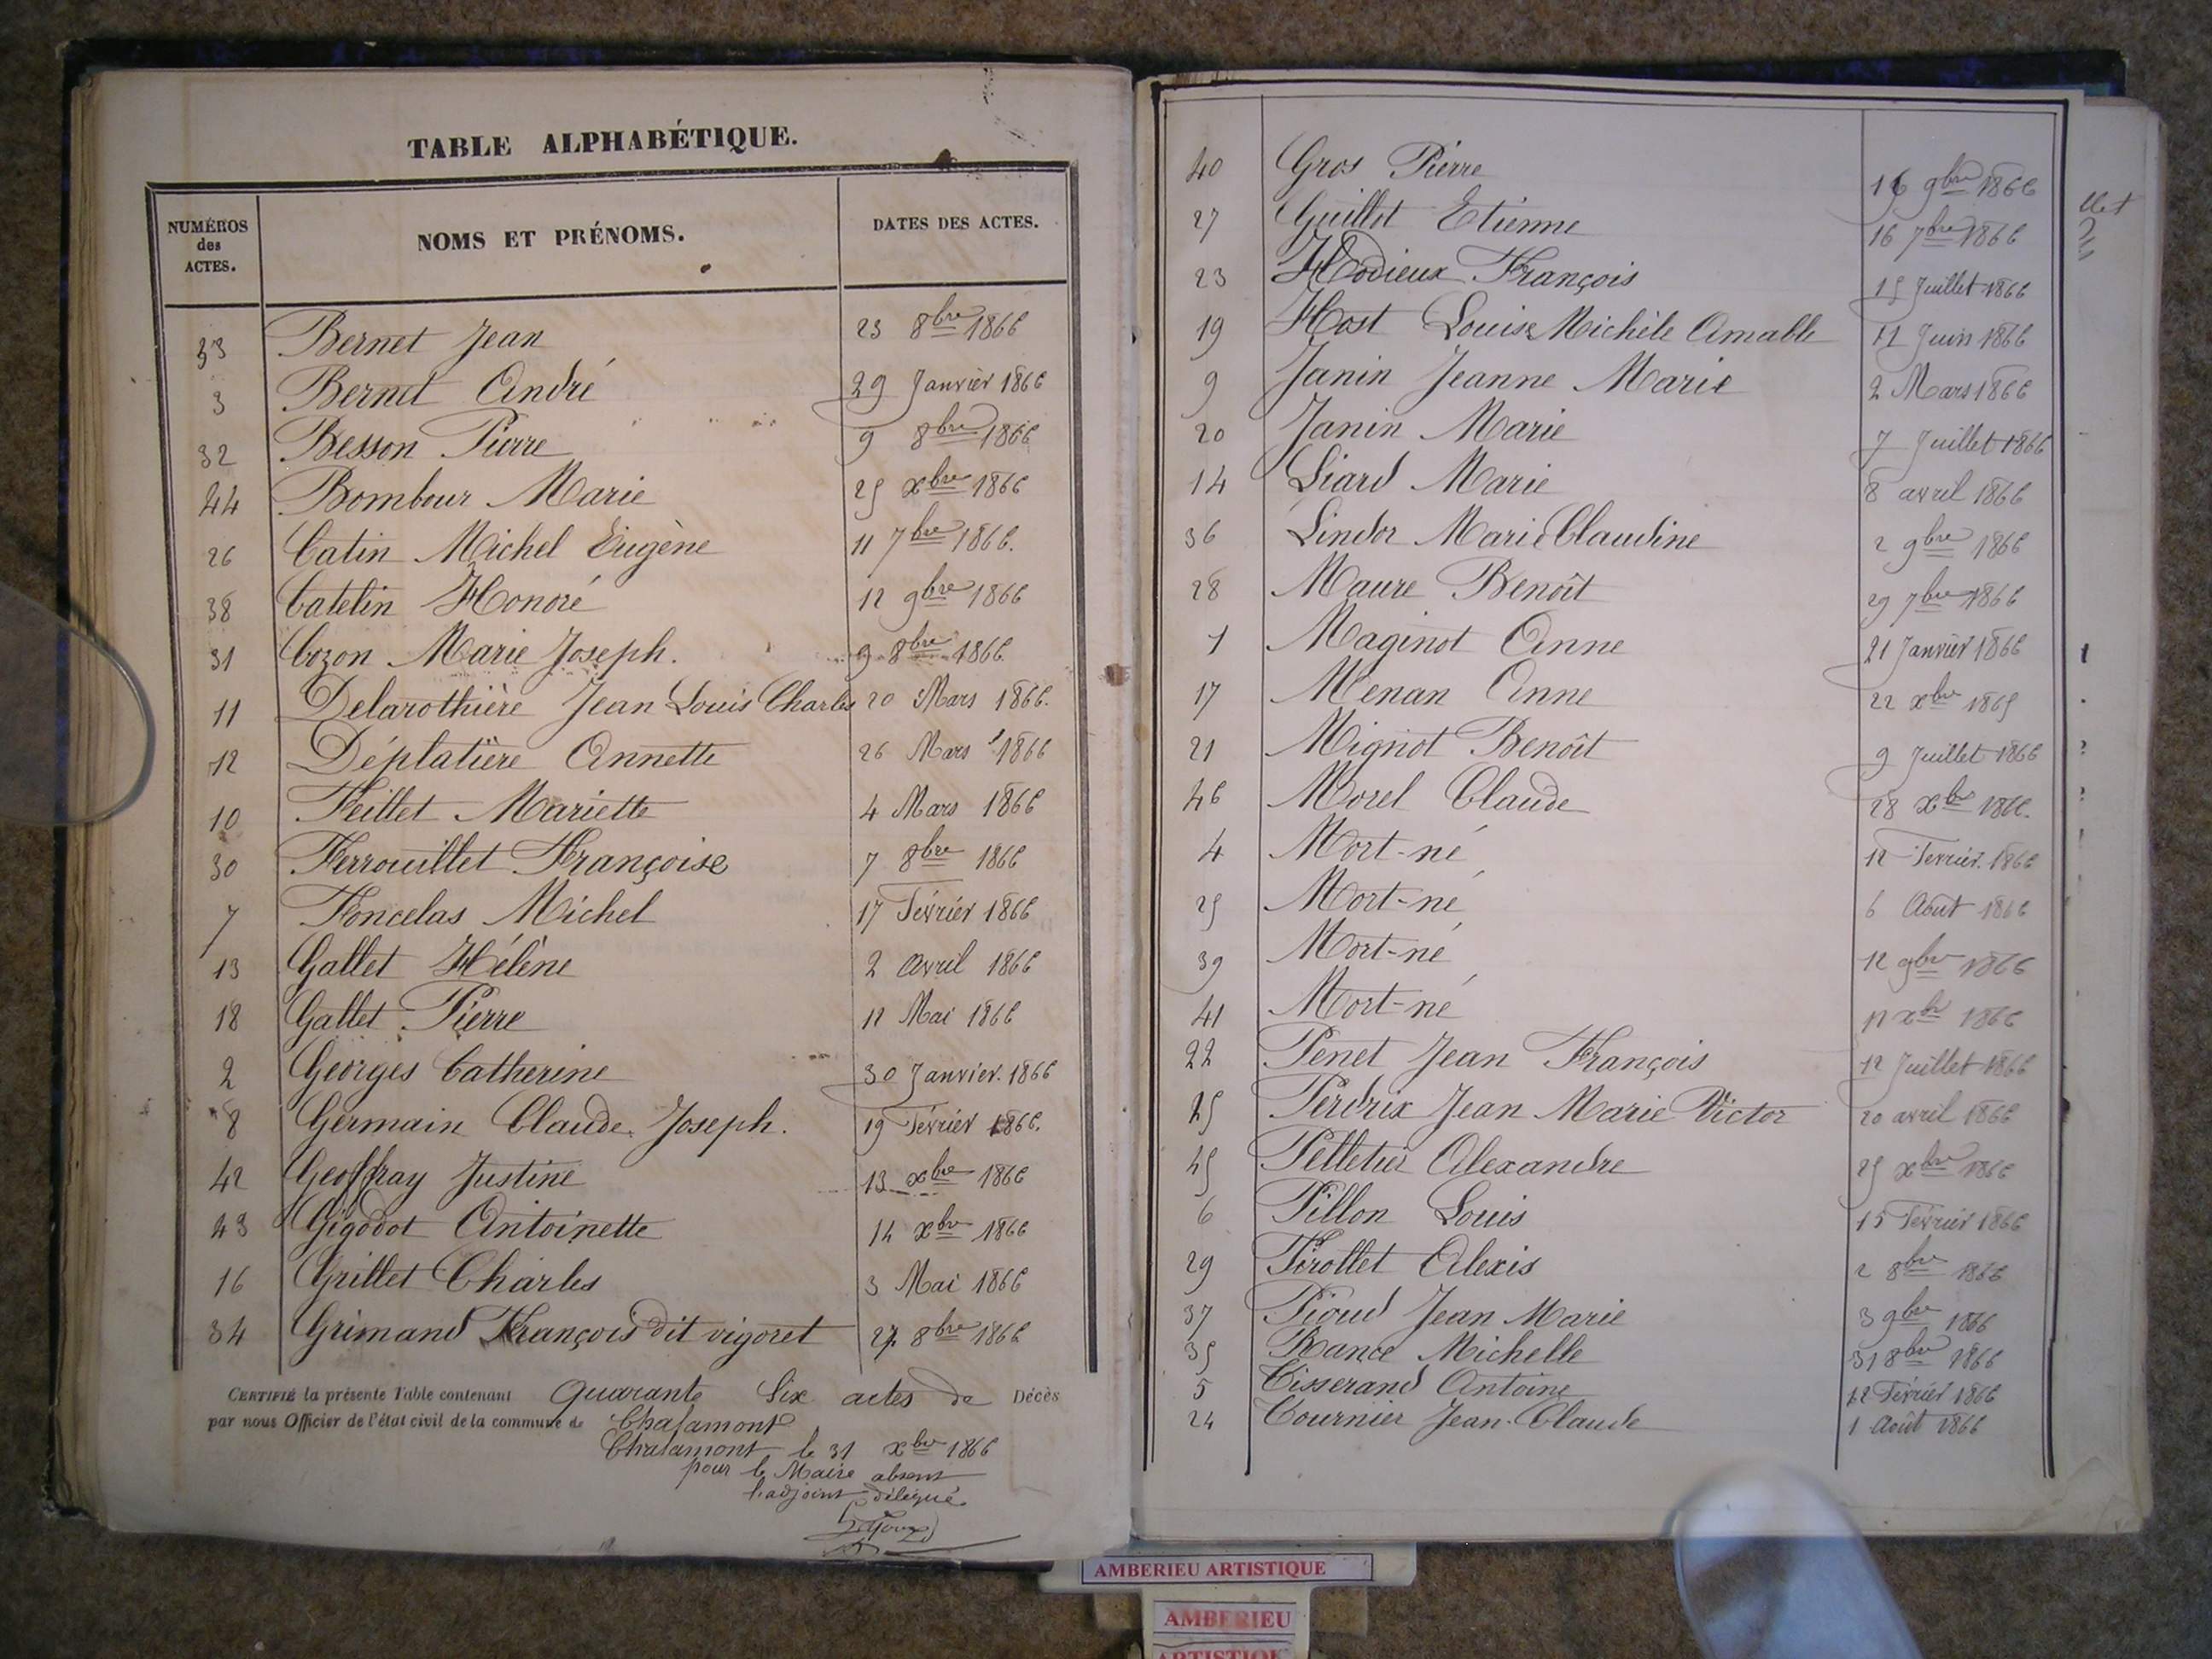 TABLE ALPHABÉTIQUE.
NUMÉROS des ACTES. NOMS ET PRÉNOMS. DATES DES ACTES.
33 Bernet Jean 23 8bre 1866
3 Bernet André 29 Janvier 1866
32 Besson Pierre 9 8bre 1866
44 Bombour Marie 25 xbre 1866
26 Catin Michel Eugène 11 7bre 1866.
38 Catelin Honoré 12 9bre 1866
31 Cozon Marie Joseph. 9 8bre 1866.
11 Delarothière Jean Louis Charles 20 Mars 1866.
12 Déplatière Annette 26 Mars 1866
10 Feillet Mariette 4 Mars 1866
30 Ferrouillet Françoise 7 8bre 1866
7 Foncelas Michel 17 Février 1866
13 Gallet Hélène 2 avril 1866
18 Gallet Pierre 11 Mai 1866
2 Georges Catherine 30 Janvier. 1866
8 Germain Claude Joseph. 19 Février 1866.
42 Geoffray Justine 13 xbre 1866
43 Gigodot Antoinette 14 xbre 1866
16 Grillet Charles 3 Mai 1866
34 Grimand François dit vigoret 27 8bre 1866
CERTIFIÉ la présente Table contenant Quarante Six actes de Décès
par nous Officier de l'état civil de la commune de Chalamont
Chalamont le 31 xbre 1866
pour le Maire absent
l'adjoint délégué
40 Gros Pierre 16 9bre 1866
27 Guillot Etienne 16 7bre 1866
23 Hodieux François 15 Juillet 1866
19 Host Louise Michèle Amable 11 Juin 1866
9 Janin Jeanne Marie 2 Mars 1866
20 Janin Marie 7 Juillet 1866
14 Liard Marie 8 avril 1866
36 Lindor Marie Claudine 2 9bre 1866
28 Maure Benoît 29 7bre 1866
1 Maginot Anne 21 Janvier 1866
17 Menan Anne 22 xbre 1865
21 Mignot Benoît 9 Juillet 1866
46 Morel Claude 28 xbre 1866.
4 Mort-né 12 Février. 1866
25 Mort-né 6 Août 1866
39 Mort-né 12 9bre 1866
41 Mort-né 11 xbre 1866
22 Penet Jean François 12 Juillet 1866
15 Perdrix Jean Marie Victor 20 avril 1866
45 Pelletier Alexandre 25 xbre 1866
6 Pillon Louis 15 Février 1866
29 Pirollet Alexis 2 8bre 1866
37 Pioud Jean Marie 3 9bre 1866
35 Rance Michelle 31 8bre 1866
5 Tisserand Antoine 12 Février 1866
24 Tournier Jean-Claude 1 Août 1866
AMBERIEU ARTISTIQUE
AMBERIEU
ARTISTIQUE